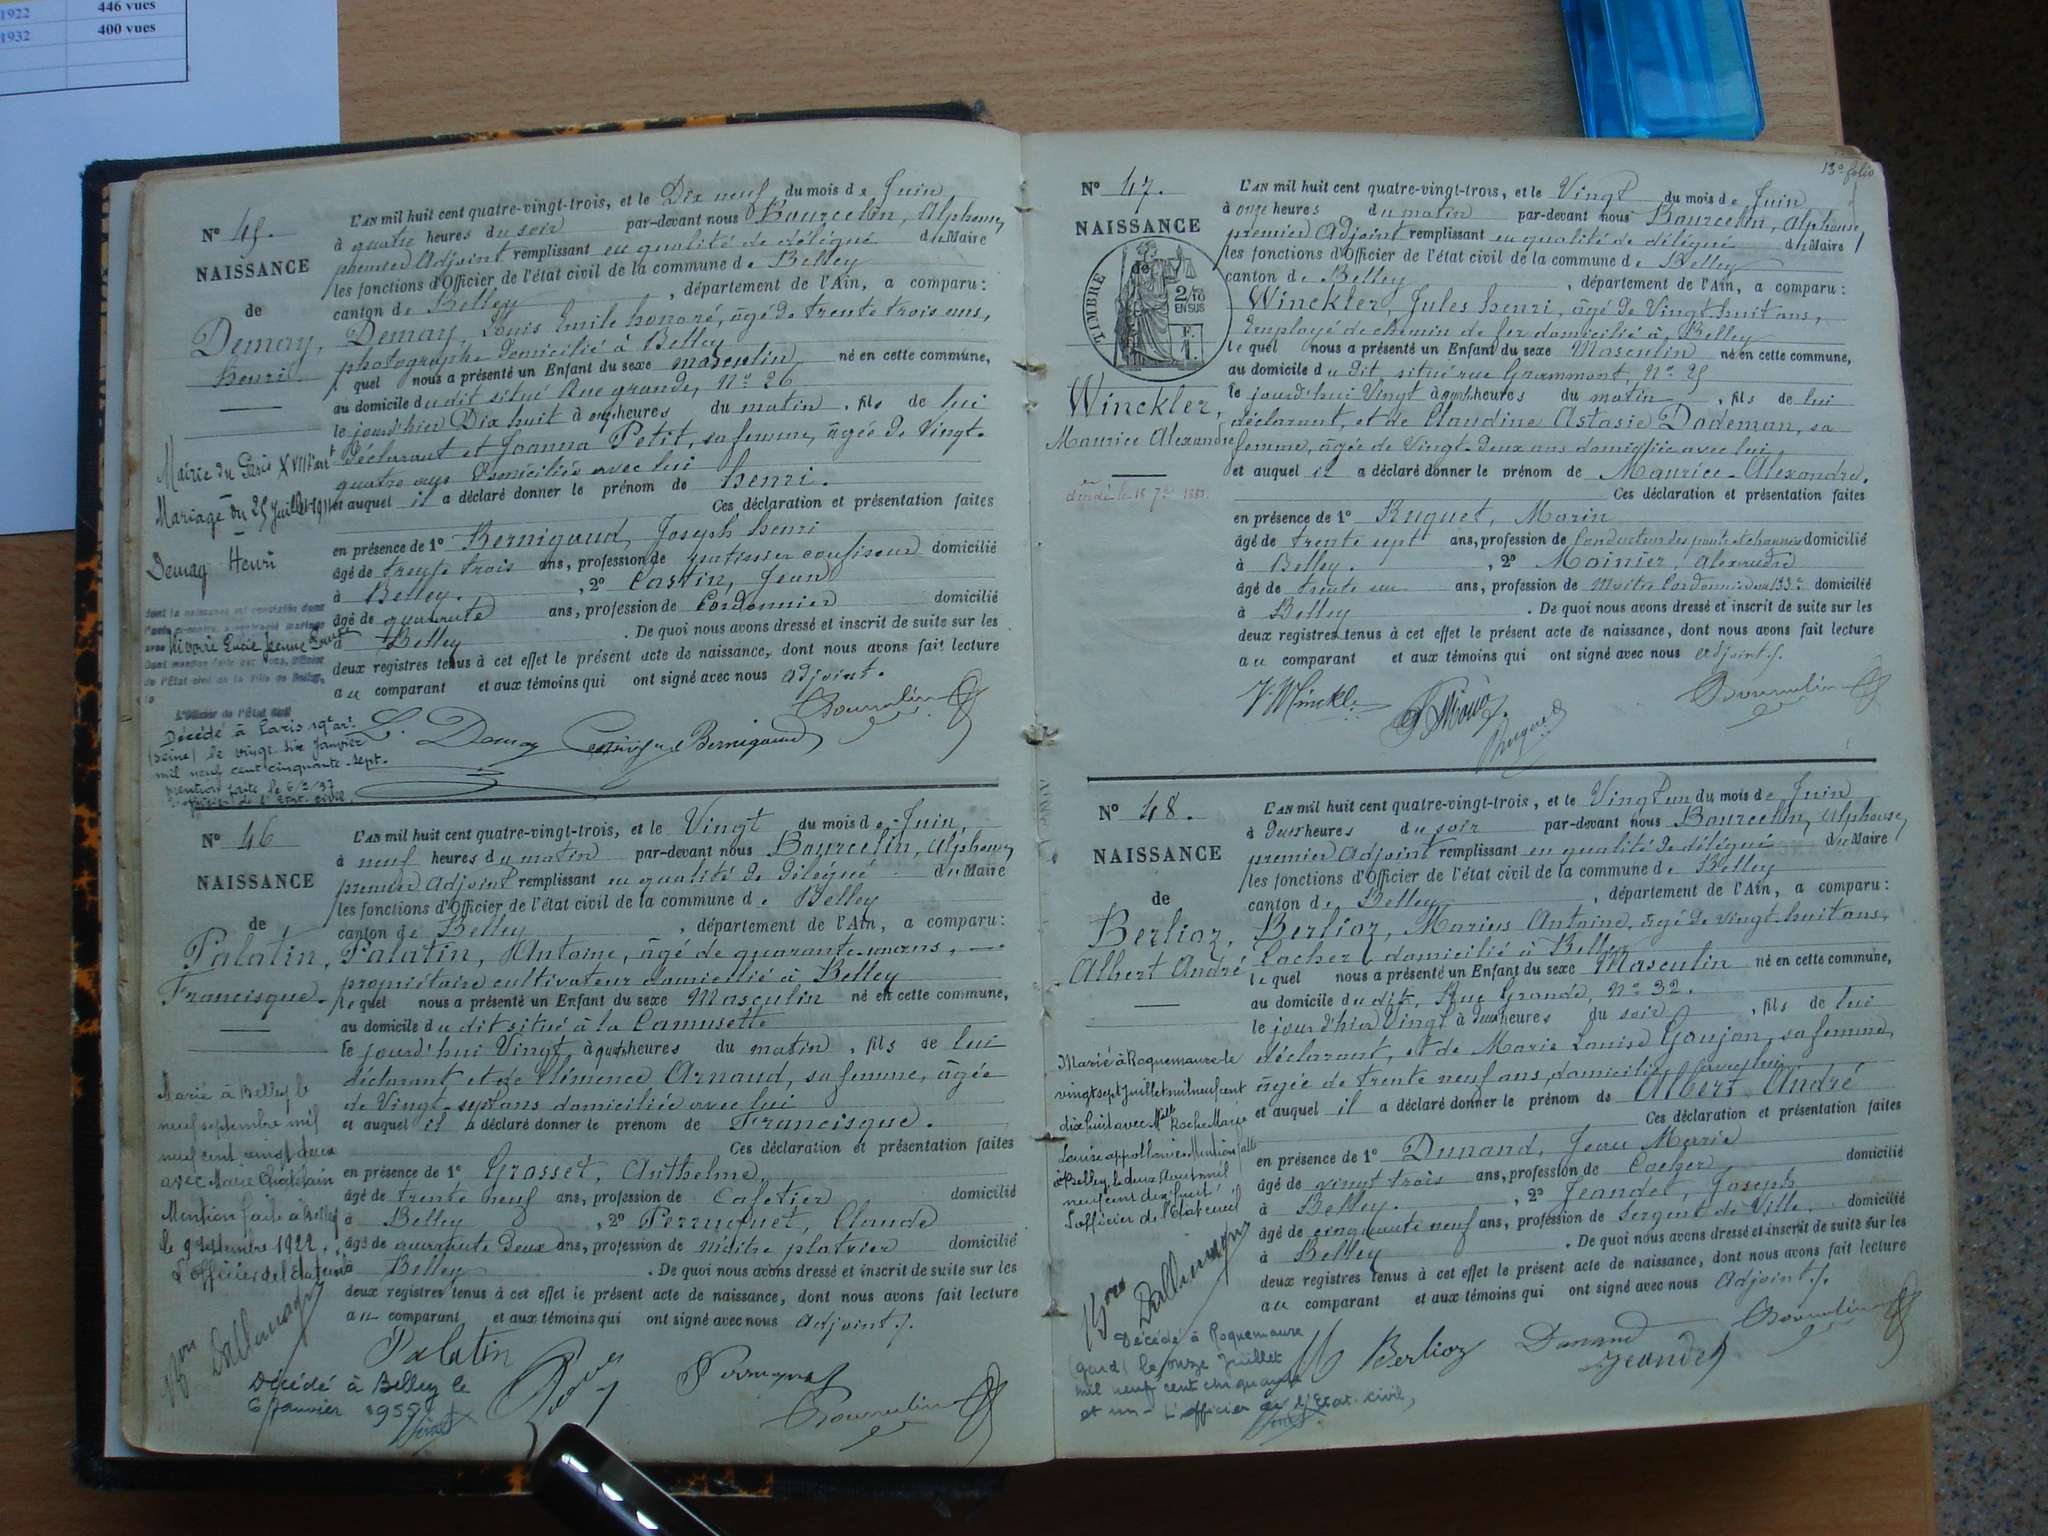 1922 446 vues
1932 400 vues
N° 45.
NAISSANCE
de
Demay,
henri
L'AN mil huit cent quatre-vingt-trois, et le Dix neuf du mois de Juin
à quatre heures du soir par-devant nous Bourcelin, Alphonse,
premier Adjoint remplissant en qualité de délégué du Maire
les fonctions d'Officier de l'état civil de la commune de Belley
canton de Belley, département de l'Ain, a comparu:
Demay, Louis Emile honoré, âgé de trente trois ans,
photographe domicilié à Belley
lequel nous a présenté un Enfant du sexe masculin né en cette commune,
au domicile du dit situé Rue grande, N° 26
le jour d'hier Dix huit à onze heures du matin, fils de lui
déclarant et Joanna Petit, sa femme, âgée de Vingt-
quatre ans domiciliée avec lui
et auquel il a déclaré donner le prénom de henri.
Ces déclaration et présentation faites
en présence de 1° Bernigaud, Joseph henri
âgé de trente trois ans, profession de patissier confiseur domicilié
à Belley., 2° Castin, Jean
âgé de quarante ans, profession de Cordonnier domicilié
à Belley. De quoi nous avons dressé et inscrit de suite sur les
deux registres tenus à cet effet le présent acte de naissance, dont nous avons fait lecture
au comparant et aux témoins qui ont signé avec nous adjoint.
L. Demay Bernigaud Bourcelin
Mairie du Paris XVIII art
Mariage du 25 Juillet 1911
Demay Henri
dont la naissance est constatée dans
avec Lucie Jeanne
de l'État civil de la Ville de Belley,
L'Officier de l'État Civil
Décédé à Paris 19e ar.
(Seine) le vingt six Janvier
mil neuf cent cinquante-sept.
mention faite le 6/2/57
L'officier de l'Etat-civil,
N° 46
NAISSANCE
de
Palatin,
Francisque.
L'AN mil huit cent quatre-vingt-trois, et le Vingt du mois de Juin
à neuf heures du matin par-devant nous Bourcelin, Alphonse,
premier Adjoint remplissant en qualité de délégué du Maire
les fonctions d'Officier de l'état civil de la commune de Belley
canton de Belley, département de l'Ain, a comparu:
Palatin, Antoine, âgé de quarante ans,
propriétaire cultivateur domicilié à Belley
lequel nous a présenté un Enfant du sexe Masculin né en cette commune,
au domicile du dit situé à la Camusette
le jourd'hui Vingt à quatre heures du matin, fils de lui
déclarant et de Clémence Arnaud, sa femme, âgée
de Vingt-sept ans domiciliée avec lui
et auquel il a déclaré donner le prénom de Francisque.
Ces déclaration et présentation faites
en présence de 1° Grosset, Anthelme
âgé de trente neuf ans, profession de Cafetier domicilié
à Belley, 2° Perruquet, Claude
âgé de quarante deux ans, profession de Maître platrier domicilié
à Belley. De quoi nous avons dressé et inscrit de suite sur les
deux registres tenus à cet effet le présent acte de naissance, dont nous avons fait lecture
au comparant et aux témoins qui ont signé avec nous adjoint.
Palatin Perruquet Bourcelin
Marié à Belley le
neuf septembre mil
neuf cent vingt deux
avec Marie Châtelain
Mention faite à Belley
le 9 septembre 1922.
L'officier de l'Etat civil
Dallemagne
Décédé à Belley le
6 Janvier 195
13e folio
N° 47.
NAISSANCE
de
TIMBRE
2/10
EN SUS
Winckler,
Maurice Alexandre
décédé le 15 7bre 1883.
L'AN mil huit cent quatre-vingt-trois, et le Vingt du mois de Juin
à onze heures du matin par-devant nous Bourcelin, Alphonse,
premier Adjoint remplissant en qualité de délégué du Maire
les fonctions d'Officier de l'état civil de la commune de Belley
canton de Belley, département de l'Ain, a comparu:
Winckler, Jules henri, âgé de Vingt huit ans,
Employé de chemin de fer domicilié à Belley
lequel nous a présenté un Enfant du sexe Masculin né en cette commune,
au domicile du dit situé rue Grammont N° 25
le jourd'hui Vingt à heures du matin, fils de lui
déclarant, et de Claudine Astasie Dodeman, sa
femme, âgée de Vingt-deux ans domiciliée avec lui
et auquel il a déclaré donner le prénom de Maurice-Alexandre.
Ces déclaration et présentation faites
en présence de 1° Ruquet, Marin
âgé de trente sept ans, profession de Conducteur des ponts et chaussées domicilié
à Belley., 2° Moinier, Alexandre
âgé de trente un ans, profession de Maitre Cordonnier au 133e domicilié
à Belley. De quoi nous avons dressé et inscrit de suite sur les
deux registres tenus à cet effet le présent acte de naissance, dont nous avons fait lecture
au comparant et aux témoins qui ont signé avec nous adjoint.
Bourcelin
N° 48.
NAISSANCE
de
Berlioz,
Albert André
L'AN mil huit cent quatre-vingt-trois, et le Vingt un du mois de Juin
à deux heures du soir par-devant nous Bourcelin, Alphonse,
premier Adjoint remplissant en qualité de délégué du Maire
les fonctions d'Officier de l'état civil de la commune de Belley
canton de Belley, département de l'Ain, a comparu:
Berlioz, Marius Antoine, âgé de vingt-huit ans,
Cocher domicilié à Belley
lequel nous a présenté un Enfant du sexe Masculin né en cette commune,
au domicile du dit, Rue Grande, N° 32.
le jour d'hier Vingt à deux heures du soir, fils de lui
déclarant, et de Marie Louise Goujon, sa femme,
âgée de trente neuf ans, domiciliée avec lui
et auquel il a déclaré donner le prénom de Albert André
Ces déclaration et présentation faites
en présence de 1° Dunand, Jean Marie
âgé de vingt trois ans, profession de Cocher domicilié
à Belley., 2° Jeandet, Joseph
âgé de cinquante neuf ans, profession de Sergent de Ville domicilié
à Belley. De quoi nous avons dressé et inscrit de suite sur les
deux registres tenus à cet effet le présent acte de naissance, dont nous avons fait lecture
au comparant et aux témoins qui ont signé avec nous Adjoint.
M Berlioz Dunand Jeandet Bourcelin
Marié à Roquemaure le
vingt sept Juillet mil neuf cent
dix huit avec Melle Roche Marie
Louise appollonie. Mention faite
à Belley, le deux Août mil
neuf cent dix huit
L'officier de l'Etat civil
Dallemagne
Décédé à Roquemaure
(Gard) le onze Juillet
mil neuf cent cinquante
et un - L'officier de l'Etat-civil,